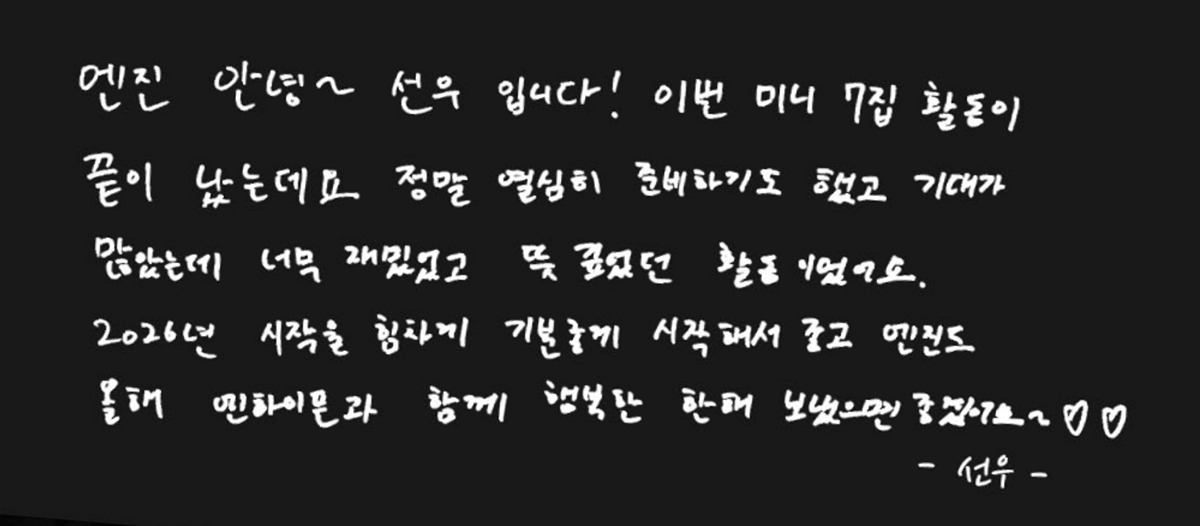 엔진 안녕~ 선우 입니다! 이번 미니 7집 활동이
끝이 났는데요 정말 열심히 준비하기도 했고 기대가
많았는데 너무 재밌었고 뜻 깊었던 활동이었어요.
2026년 시작을 힘차게 기분좋게 시작해서 좋고 엔진도
올해 엔하이픈과 함께 행복한 한해 보냈으면 좋겠어요~♡♡
- 선우 -